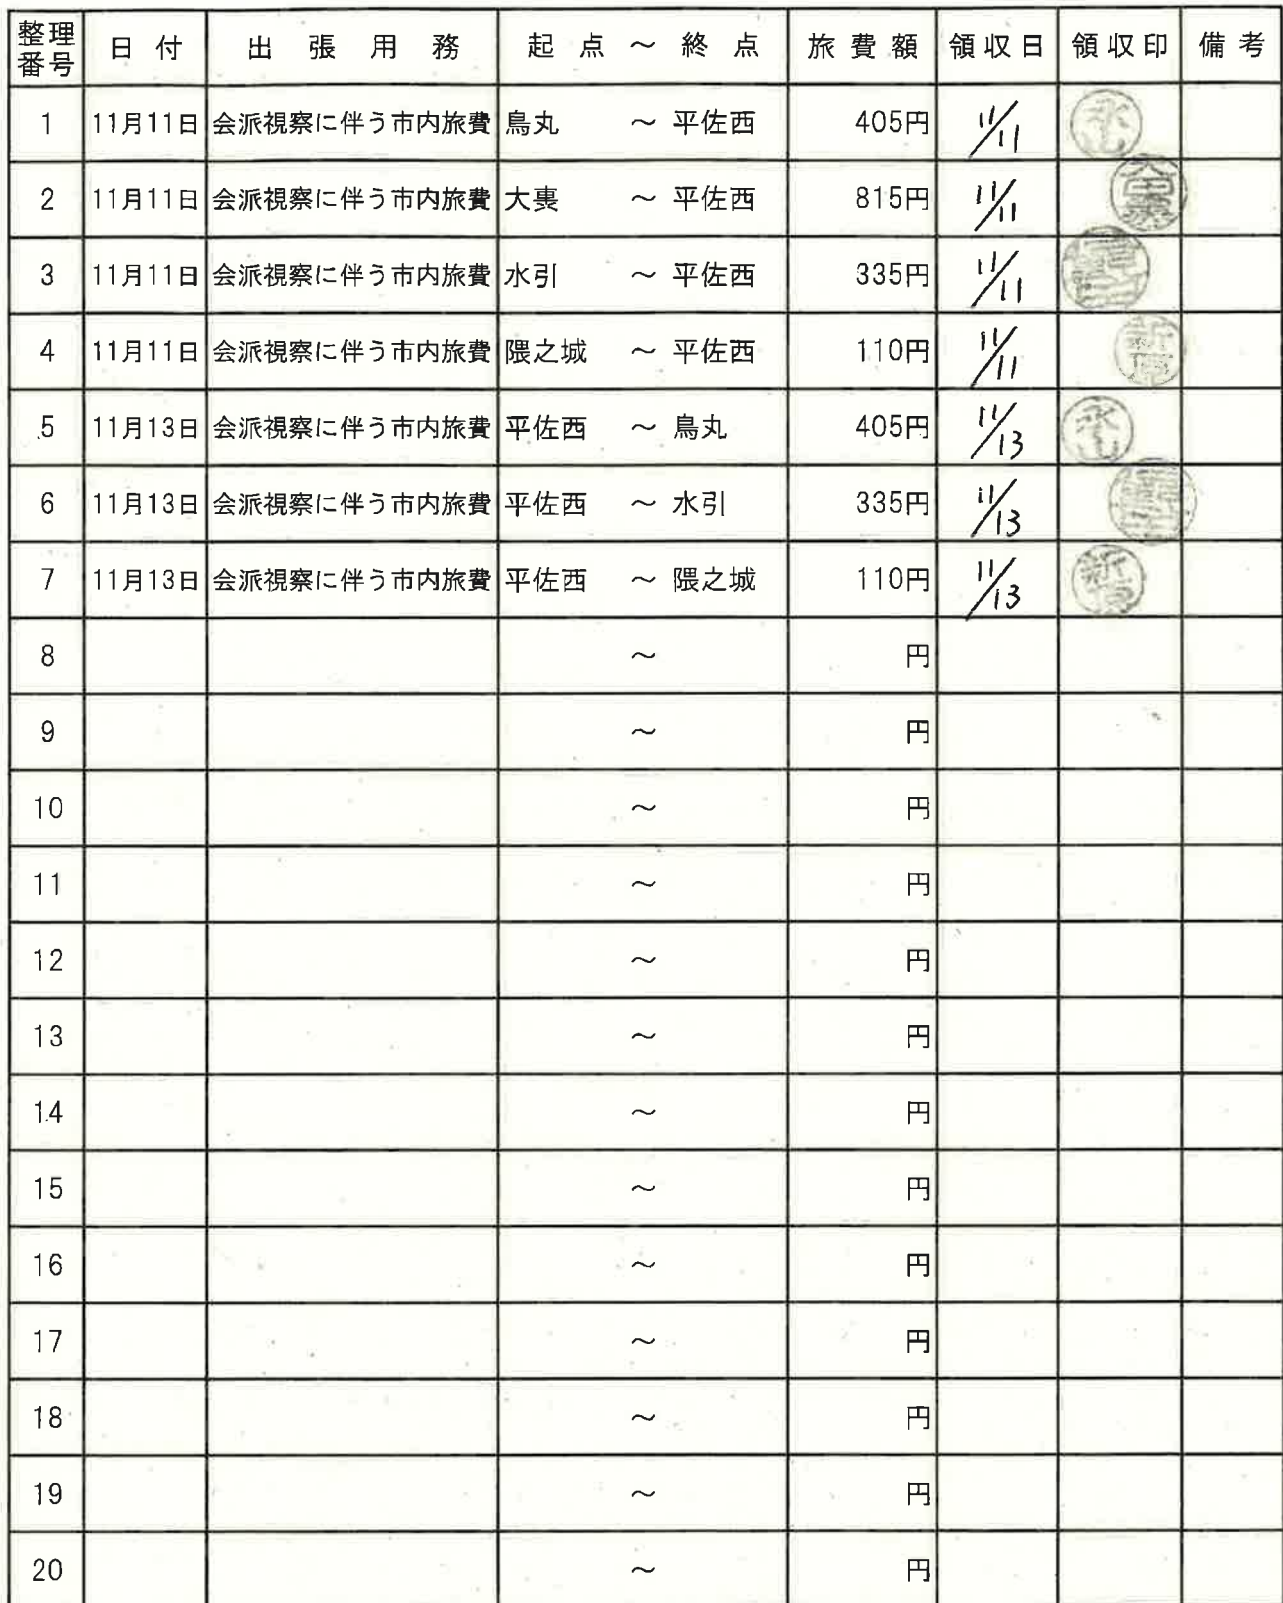 整理番号 日付 出張用務 起点～終点 旅費額 領収日 領収印 備考
1 11月11日 会派視察に伴う市内旅費 鳥丸 ～ 平佐西 405円 11/11
2 11月11日 会派視察に伴う市内旅費 大裏 ～ 平佐西 815円 11/11
3 11月11日 会派視察に伴う市内旅費 水引 ～ 平佐西 335円 11/11
4 11月11日 会派視察に伴う市内旅費 隈之城 ～ 平佐西 110円 11/11
5 11月13日 会派視察に伴う市内旅費 平佐西 ～ 鳥丸 405円 11/13
6 11月13日 会派視察に伴う市内旅費 平佐西 ～ 水引 335円 11/13
7 11月13日 会派視察に伴う市内旅費 平佐西 ～ 隈之城 110円 11/13
8 ～ 円
9 ～ 円
10 ～ 円
11 ～ 円
12 ～ 円
13 ～ 円
14 ～ 円
15 ～ 円
16 ～ 円
17 ～ 円
18 ～ 円
19 ～ 円
20 ～ 円